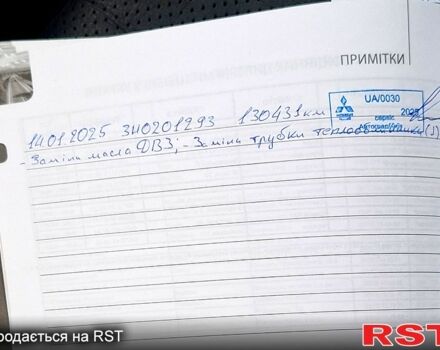 ПРИМІТКИ
UA/0030
сервіс 2025
14.01.2025 ЗН0201293 130431км
- Заміна масла ДВЗ; - Заміна трубки
родається на RST
RST